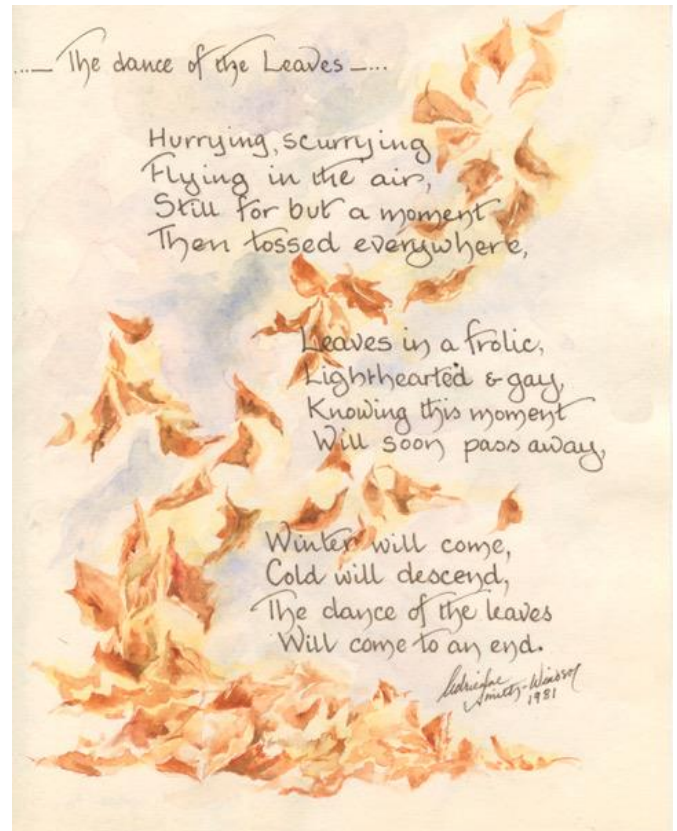 ...— The dance of the Leaves —...
Hurrying, scurrying
Flying in the air,
Still for but a moment
Then tossed everywhere,
Leaves in a frolic,
Lighthearted & gay,
Knowing this moment
Will soon pass away,
Winter will come,
Cold will descend,
The dance of the leaves
Will come to an end.
Adrienne
Smith-Windsor
1981